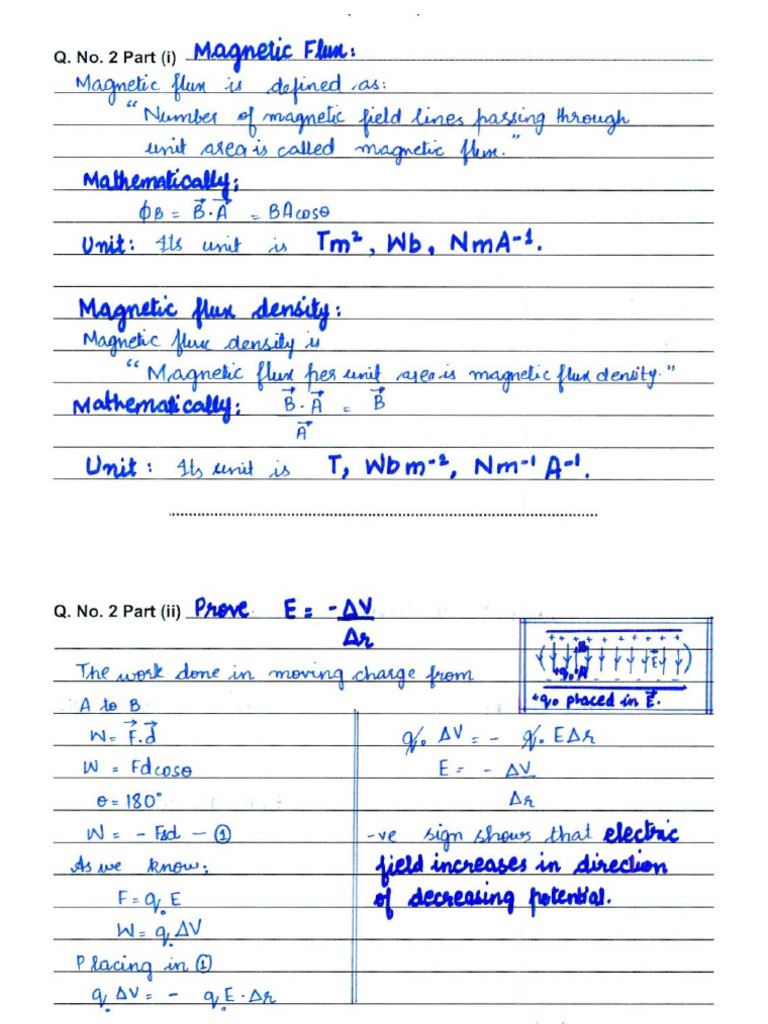 Q. No. 2 Part (i) Magnetic Flux:
Magnetic flux is defined as:
"Number of magnetic field lines passing through
unit area is called magnetic flux."
Mathematically:
ϕB = B⃗·A⃗ = BAcosθ
Unit: Its unit is Tm², Wb, NmA⁻¹.
Magnetic flux density:
Magnetic flux density is
"Magnetic flux per unit area is magnetic flux density."
Mathematically: B⃗·A⃗ = B⃗
A⃗
Unit: Its unit is T, Wbm⁻², Nm⁻¹ A⁻¹.
Q. No. 2 Part (ii) Prove E = -ΔV
Δr
+ + + + + + + + +
B
E⃗
+q₀ A
- - - -
+q₀ placed in E⃗.
The work done in moving charge from
A to B
W = F⃗.d⃗
W = Fdcosθ
θ = 180°
W = - Fd — ①
As we know:
F = q₀E
W = q₀ΔV
Placing in ①
q₀ΔV = - q₀E·Δr
q₀ ΔV = - q₀ EΔr
E = - ΔV
Δr
-ve sign shows that electric
field increases in direction
of decreasing potential.